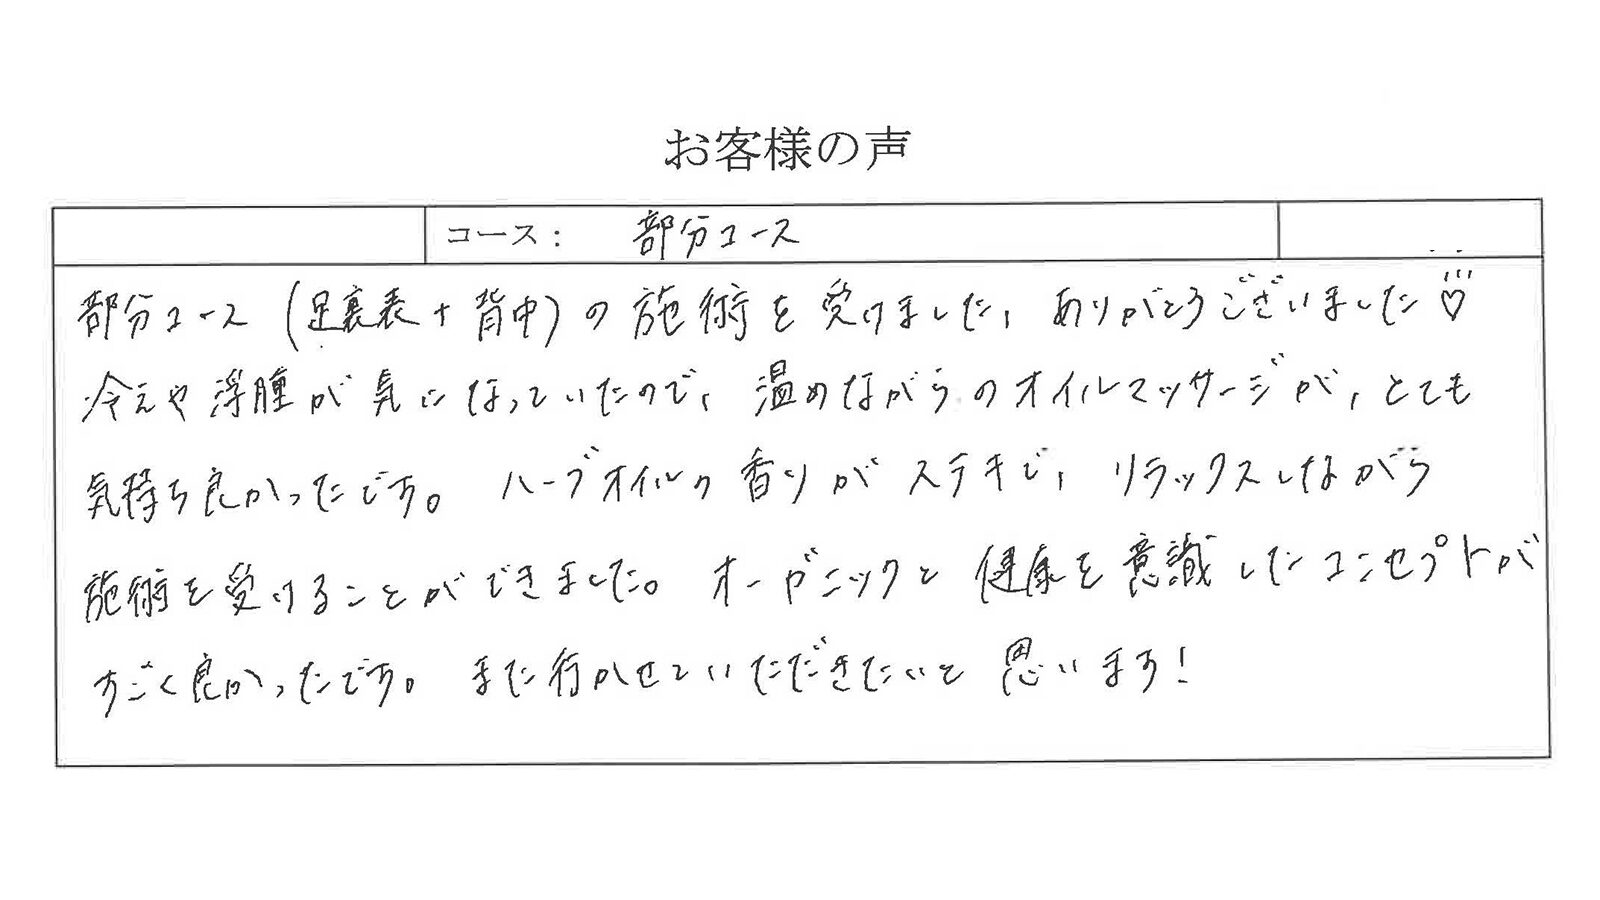 お客様の声
コース： 部分コース
部分コース (足裏表+背中)の施術を受けました、ありがとうございました♡
冷えや浮腫が気になっていたので、温めながらのオイルマッサージが、とても
気持ち良かったです。ハーブオイルの香りがステキで、リラックスしながら
施術を受けることができました。オーガニックと健康を意識したコンセプトが
すごく良かったです。また行かせていただきたいと思います!